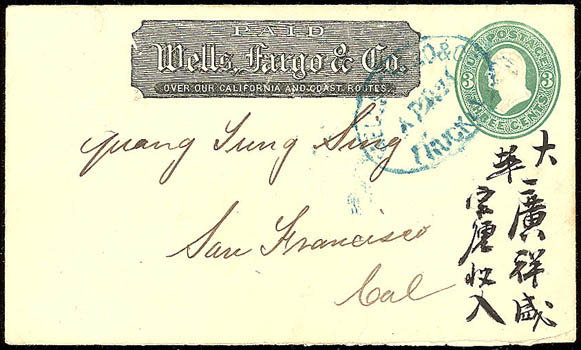 PAID
Wells, Fargo & Co.
OVER OUR CALIFORNIA AND COAST ROUTES.
U.S. POSTAGE
3 3
THREE CENTS
WELLS FARGO & CO
APR
TRUCKEE
Quang Sung Sing
San Francisco
Cal
大廣祥盛